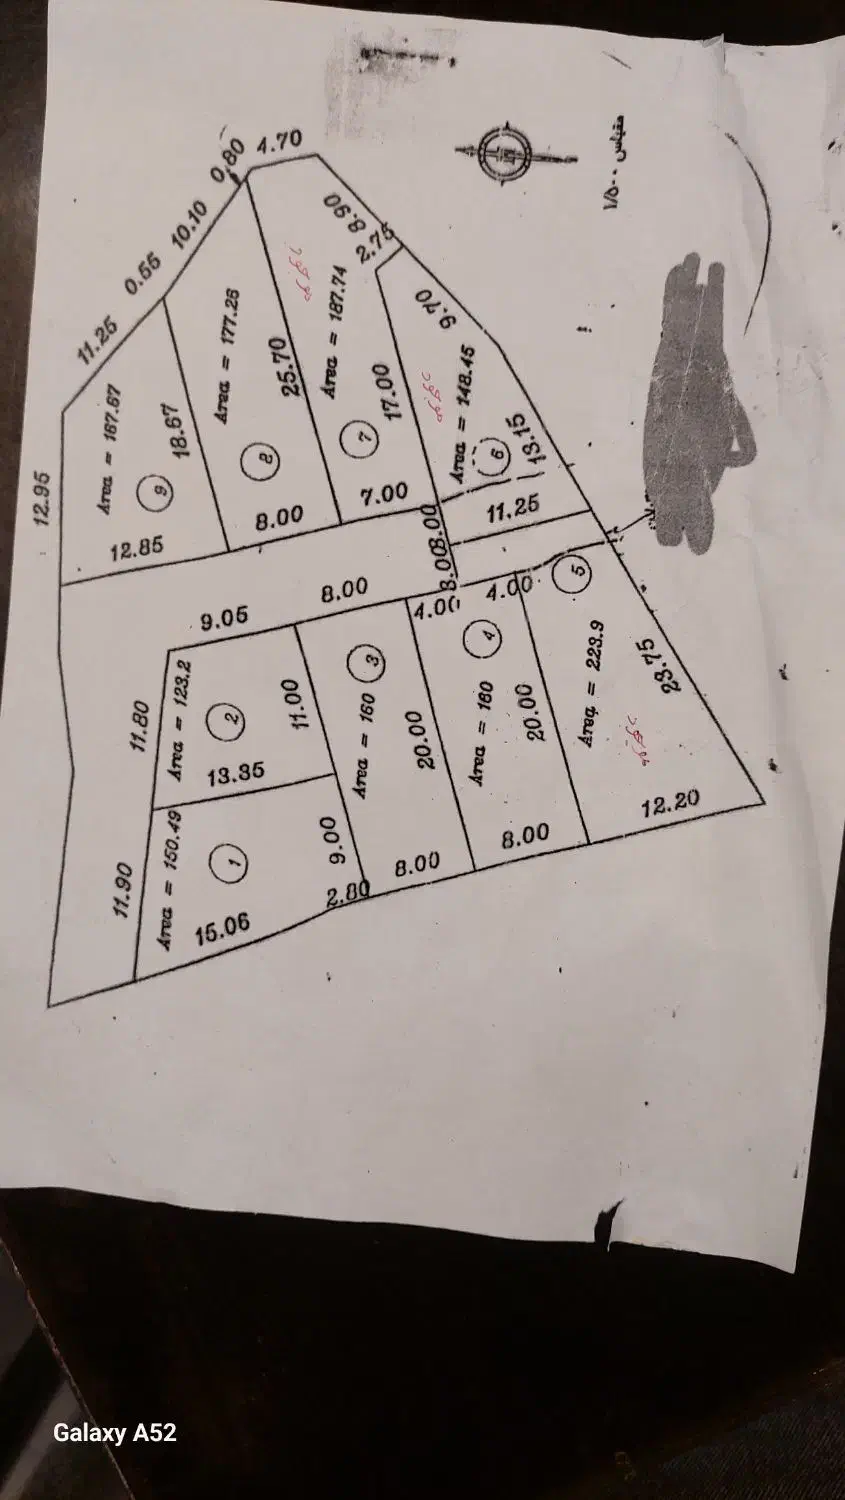 4.70
0.80
10.10
0.55
11.25
12.95
8.90
2.75
9.70
مقیاس ۱/۵۰۰
Area = 167.67
9
18.67
12.85
Area = 177.26
8
25.70
8.00
Area = 187.74
7
17.00
7.00
Area = 148.45
6
13.15
11.25
3.00
3.00
9.05
8.00
4.00
4.00
11.80
Area = 123.2
2
11.00
13.35
Area = 160
3
20.00
Area = 160
4
20.00
5
Area = 223.9
23.75
12.20
11.90
Area = 150.49
1
15.06
9.00
2.80
8.00
8.00
Galaxy A52